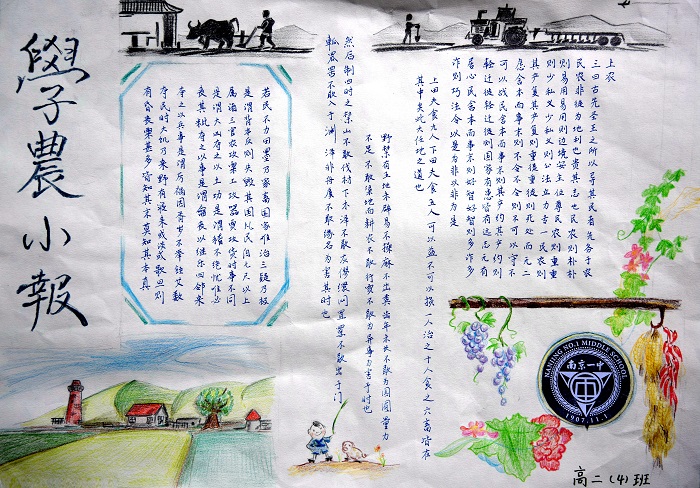 學子農小報
上农
三曰古先圣王之所以导其民者先务于农
民农非徒为地利也贵其志也民农则朴朴
则易用易用则边境安主位尊民农则重重
则少私义少私义则公法立力专一民农则
其产复其产复则重徙重徙则死处而无二
虑舍本而事末则不令不令则不可以守不
可以战民舍本而事末则其产约其产约则
轻迁徙轻迁徙则国家有患皆有远志无有
居心民舍本而事末则好智好智则多诈多
诈则巧法令以是为非以非为是
上田夫食九人下田夫食五人可以益不可以损一人治之十人食之六畜皆在
其中矣此大任地之道也
野禁有五地未辟易不操麻不出粪齿年未长不敢为园囿量力
不足不敢渠地而耕农不敢行贾不敢为异事为害于时也
然后制四时之禁山不敢伐材下木泽不敢灰僇缳网罝罦不敢出于门
罛罟不敢入于渊泽非舟虞不敢缘名为害其时也
若民不力田墨乃家畜国家难治三疑乃极
是谓背本反则失毁其国凡民自七尺以上
属诸三官农攻粟工攻器贾攻货时事不同
是谓大凶夺之以土功是谓稽不绝忧唯必
丧其秕夺之以事是谓籥丧以继乐四邻来
夺之以兵事是谓厉祸因胥岁不举铚艾数
夺民时大饥乃来野有寝耒或谈或歌旦则
有昏丧粟甚多皆知其末莫知其本真
NANJING NO.1 MIDDLE SCHOOL
南京一中
1907.11.1
高二(4)班